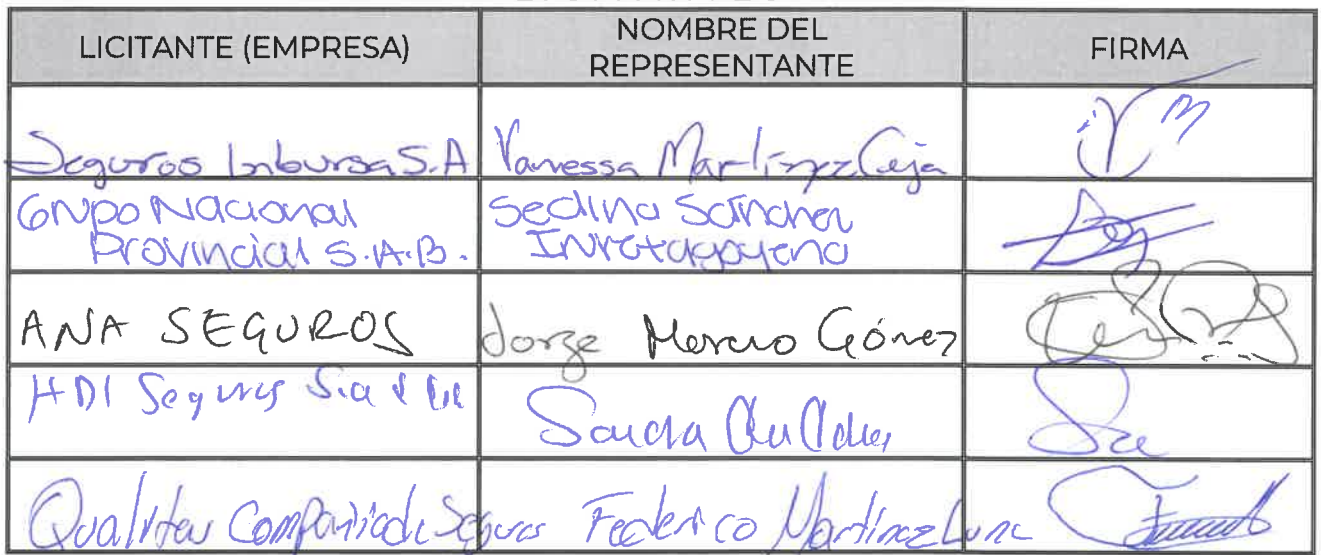 LICITANTE (EMPRESA)
NOMBRE DEL
REPRESENTANTE
FIRMA
Seguros Inbursa S.A
Vanessa Martínez Ceja
Grupo Nacional
Provincial S.A.B.
Sedina Sánchez
ANA SEGUROS
Jorge Gómez
HDI Seguros S.a
Qualitas Compañia de Seguros
Federico Martínez Luna